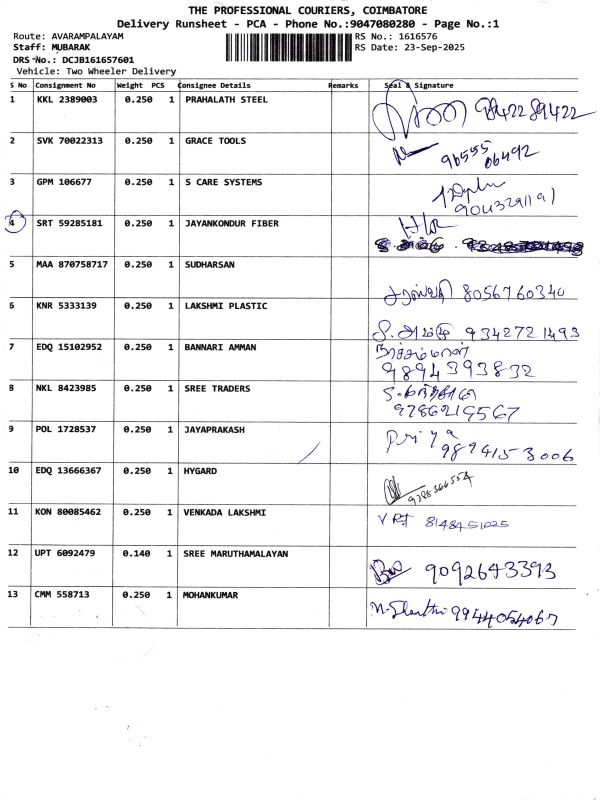 THE PROFESSIONAL COURIERS, COIMBATORE
Delivery Runsheet - PCA - Phone No.:9047080280 - Page No.:1
Route: AVARAMPALAYAM RS No.: 1616576
Staff: MUBARAK RS Date: 23-Sep-2025
DRS No.: DCJB161657601
Vehicle: Two Wheeler Delivery
S No Consignment No Weight PCS Consignee Details Remarks Seal & Signature
1 KKL 2389003 0.250 1 PRAHALATH STEEL 9842289422
2 SVK 70022313 0.250 1 GRACE TOOLS 96555
06492
3 GPM 106677 0.250 1 S CARE SYSTEMS
9043291191
4 SRT 59285181 0.250 1 JAYANKONDUR FIBER
5 MAA 870758717 0.250 1 SUDHARSAN
8056760340
6 KNR 5333139 0.250 1 LAKSHMI PLASTIC
9342721493
7 EDQ 15102952 0.250 1 BANNARI AMMAN
9894393832
8 NKL 8423985 0.250 1 SREE TRADERS
9786219567
9 POL 1728537 0.250 1 JAYAPRAKASH Priya
9894153006
10 EDQ 13666367 0.250 1 HYGARD
11 KON 80085462 0.250 1 VENKADA LAKSHMI VRT 8148451025
12 UPT 6092479 0.140 1 SREE MARUTHAMALAYAN
9092643393
13 CMM 558713 0.250 1 MOHANKUMAR
9944054067